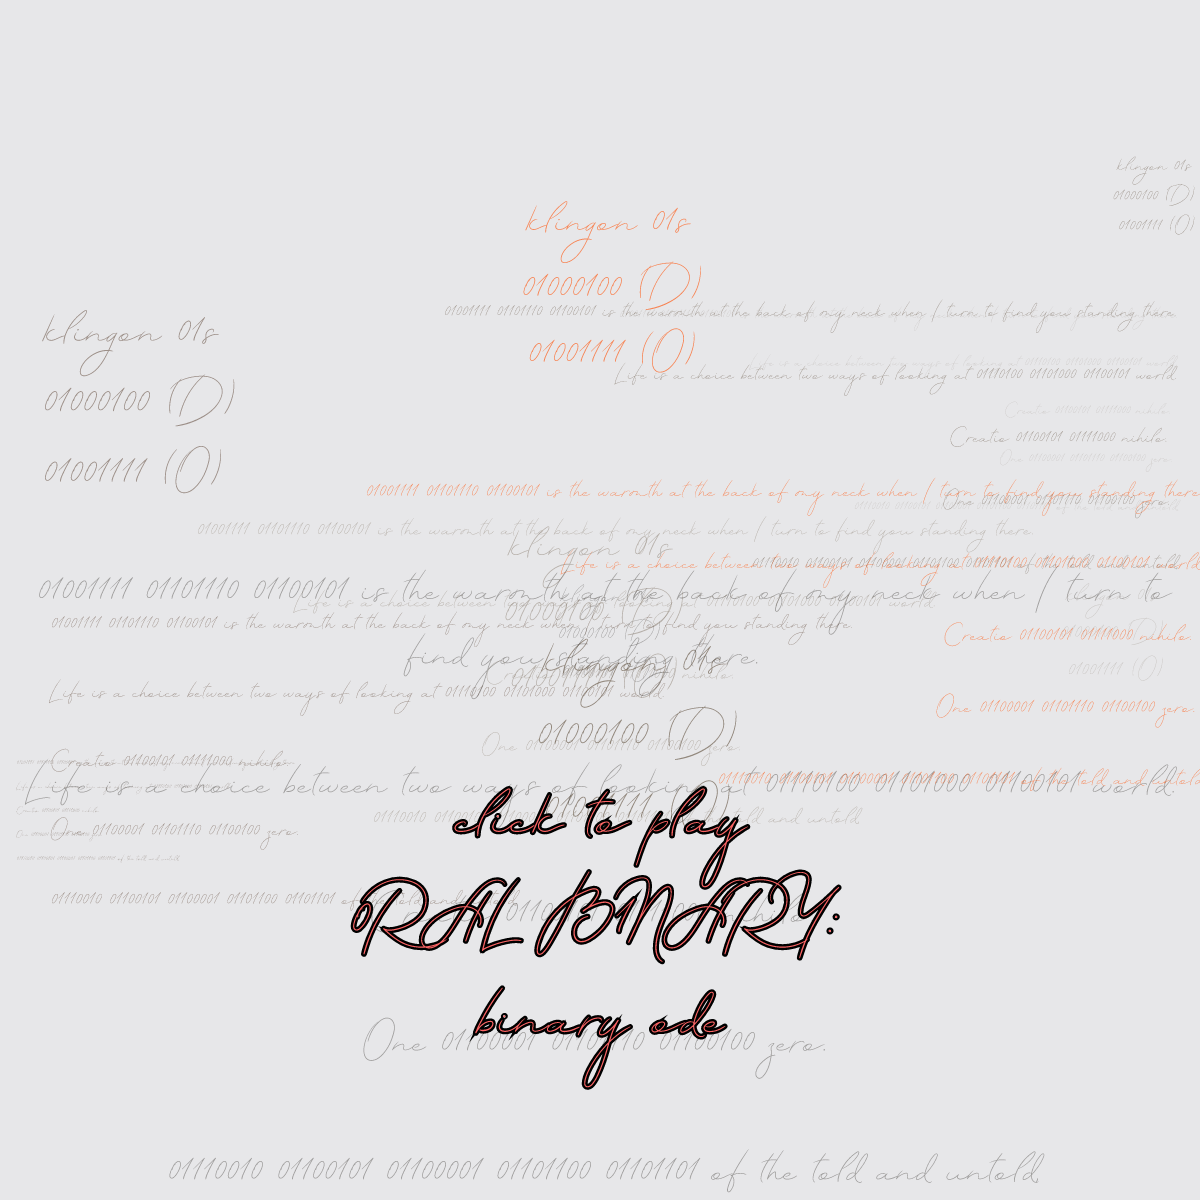 klingon 01s
01000100 (D)
01001111 (O)
klingon 01s
01000100 (D)
01001111 (O)
01001111 01101110 01100101 is the warmth at the back of my neck when I turn to find you standing there.
klingon 01s
01000100 (D)
01001111 (O)
Life is a choice between two ways of looking at
Life is a choice between two ways of looking at 01110100 01101000 01100101 world.
Creatio 01100101 01111000 nihilo.
Creatio 01100101 01111000 nihilo.
One 01100001 01101110 01100100 zero.
01001111 01101110 01100101 is the warmth at the back of my neck when I turn to find you standing there.
One 01100001 01101110 01100100 zero.
01001111 01101110 01100101 is the warmth at the back of my neck when I turn to find you standing there.
klingon 01s
Life is a choice between two ways of looking at
of the told and untold
01001111 01101110 01100101 is the warmth at the back of my neck when I turn to
find you standing there.
Life is a choice between two ways of looking at 01110100 01101000 01100101 world.
01000100 (D)
01001111 01101110 01100101 is the warmth at the back of my neck when I turn to find you standing there.
01000100 (D)
Creatio 01100101 01111000 nihilo.
klingon 01s
01001111 (O)
nihilo.
Life is a choice between two ways of looking at 01110100 01101000 01100101 world.
One 01100001 01101110 01100100 zero.
01000100 (D)
One 01100001 01101110 01100100 zero.
Creatio 01100101 01111000 nihilo.
Life is a choice between two ways of looking at 01110100 01101000 01100101 world.
of the told and untold
01001111 (O)
told and untold
click to play
One 01100001 01101110 01100100 zero.
of the told and untold
01110010 01100101 01100001 01101100 01101101 of the told and untold
ORAL BINARY:
nihilo.
binary ode
One 01100001 01101110 01100100 zero.
01110010 01100101 01100001 01101100 01101101 of the told and untold